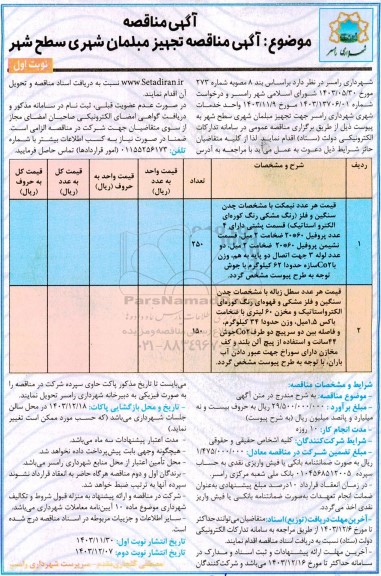 آگهی مناقصه
موضوع: آگهی مناقصه تجهیز مبلمان شهری سطح شهر
نوبت اول
شهرداری رامسر در نظر دارد براساس بند ۸ مصوبه شماره ۲۷۳
مورخ ۱۴۰۳/۰۵/۳۰ شورای اسلامی شهر رامسر و درخواست
شماره ۱۴۰۳/۱۳۷۰۶/۰۱ مورخ ۱۴۰۳/۱۱/۹ واحد خدمات
شهری شهرداری رامسر جهت تجهیز مبلمان شهری سطح شهر به
پیوست ذیل از طریق برگزاری مناقصه عمومی در سامانه تدارکات
الکترونیکی دولت (ستاد) اقدام نمایند. لذا از کلیه متقاضیان
حائز شرایط ذیل دعوت به عمل می‌آید با مراجعه به آدرس
www.Setadiran.ir نسبت به دریافت اسناد مناقصه و تحویل
آن اقدام نمایند.
در صورت عدم عضویت قبلی، ثبت نام در سامانه مذکور و
دریافت گواهی امضای الکترونیکی صاحبان امضای مجاز
از سوی متقاضیان جهت شرکت در مناقصه الزامی است.
ضمنا در صورت نیاز به کسب اطلاعات بیشتر با شماره
تلفن: ۰۱۱۵۵۲۵۶۱۷۳ (امور قراردادها) تماس حاصل فرمایید.
ردیف
شرح و مشخصات
تعداد
قیمت واحد به عدد (ریال)
قیمت واحد به حروف (ریال)
قیمت کل به عدد (ریال)
قیمت کل به حروف (ریال)
۱
قیمت هر عدد نیمکت با مشخصات چدن
سنگین و فلز (رنگ مشکی رنگ کوره‌ای
الکترو استاتیک) قسمت پشتی دارای ۴
عدد پروفیل ۶۰*۲۰ ضخامت ۲ میل، قسمت
نشیمن پروفیل ۶۰*۲۰ ضخامت ۲ میل، دو
عدد لوله ۲ جهت اتصال دو پایه به هم، وزن
سازه حدودا ۶۲ کیلوگرم با جوش Co۲با
توجه به طرح پیوست مشخص گردد.
۲۵۰
۲
قیمت هر عدد سطل زباله با مشخصات چدن
سنگین و فلز مشکی و قهوه‌ای رنگ کوره‌ای
الکترواستاتیک و مخزن ۶۰ لیتری با ضخامت
باکس ۱.۵میل، وزن حدودا ۳۴ کیلوگرم،
و فاصله بین دو سرپیچ دو طرف
۴۴سانت و استفاده از پیچ آلن بلند و کف
مخازن دارای سوراخ جهت عبور دادن آب
باران، با توجه به طرح پیوست مشخص گردد.
۱۵۰
شرایط و مشخصات مناقصه:
- موضوع مناقصه: به شرح مندرج در متن آگهی
- مبلغ برآورد: ۲۹/۵۰۰/۰۰۰/۰۰۰ ریال به حروف بیست و نه
میلیارد و پانصد میلیون ریال (به شرح پیوست)
- مدت انجام کار: ۱۰ روزه
- شرایط شرکت‌کنندگان: کلیه اشخاص حقیقی و حقوقی
- مبلغ تضمین شرکت در مناقصه معادل: ۱/۴۷۵/۰۰۰/۰۰۰
ریال به صورت ضمانتنامه بانکی یا فیش واریزی نقدی به حساب
سپرده بانک ملی شعبه مرکزی رامسر.
- در زمان انعقاد قرارداد ۱۰درصد مبلغ پیشنهادی به‌عنوان
ضمانت انجام تعهدات به‌صورت ضمانتنامه بانکی یا فیش واریز
نقدی اخذ می‌گردد.
- آخرین مهلت دریافت (توزیع) اسناد: متقاضیان می‌توانند حداکثر
تا مورخ ۱۴۰۳/۱۲/۶ از طریق مراجعه به سامانه تدارکات الکترونیکی
دولت (ستاد) نسبت به دریافت اسناد مناقصه اقدام نمایند.
- آخرین مهلت ارائه پیشنهادات و ثبت اسناد و مدارک در
سامانه حداکثر تا مورخ ۱۴۰۳/۱۲/۱۶ می‌باشد و شرکت‌کنندگان
می‌بایست تا تاریخ مذکور پاکت حاوی سپرده شرکت در مناقصه را
به صورت فیزیکی به دبیرخانه شهرداری رامسر تحویل نمایند.
- تاریخ و محل بازگشایی پاکات: ۱۴۰۳/۱۲/۱۸ در محل سالن
جلسات شهرداری می‌باشد (که حسب مورد ممکن است تغییر
نماید)
- مدت اعتبار پیشنهادات سه ماه می‌باشد.
- هیچگونه وجهی بابت پیش‌پرداخت داده نخواهد شد.
- محل تأمین اعتبار از محل منابع شهرداری رامسر می‌باشد.
- برندگان اول و دوم مناقصه هرگاه حاضر به انعقاد قرارداد نشوند
سپرده آنها به ترتیب ضبط خواهد شد.
- شرکت در مناقصه و ارائه پیشنهاد به منزله قبول شروط و تکالیف
شهرداری موضوع ماده ۱۰ آیین‌نامه معاملات شهرداری می‌باشد.
- سایر اطلاعات و جزییات مربوطه در اسناد مناقصه درج شده
است.
تاریخ انتشار نوبت اول: ۱۴۰۳/۱۱/۳۰
تاریخ انتشار نوبت دوم: ۱۴۰۳/۱۲/۰۷
سرپرست شهرداری رامسر